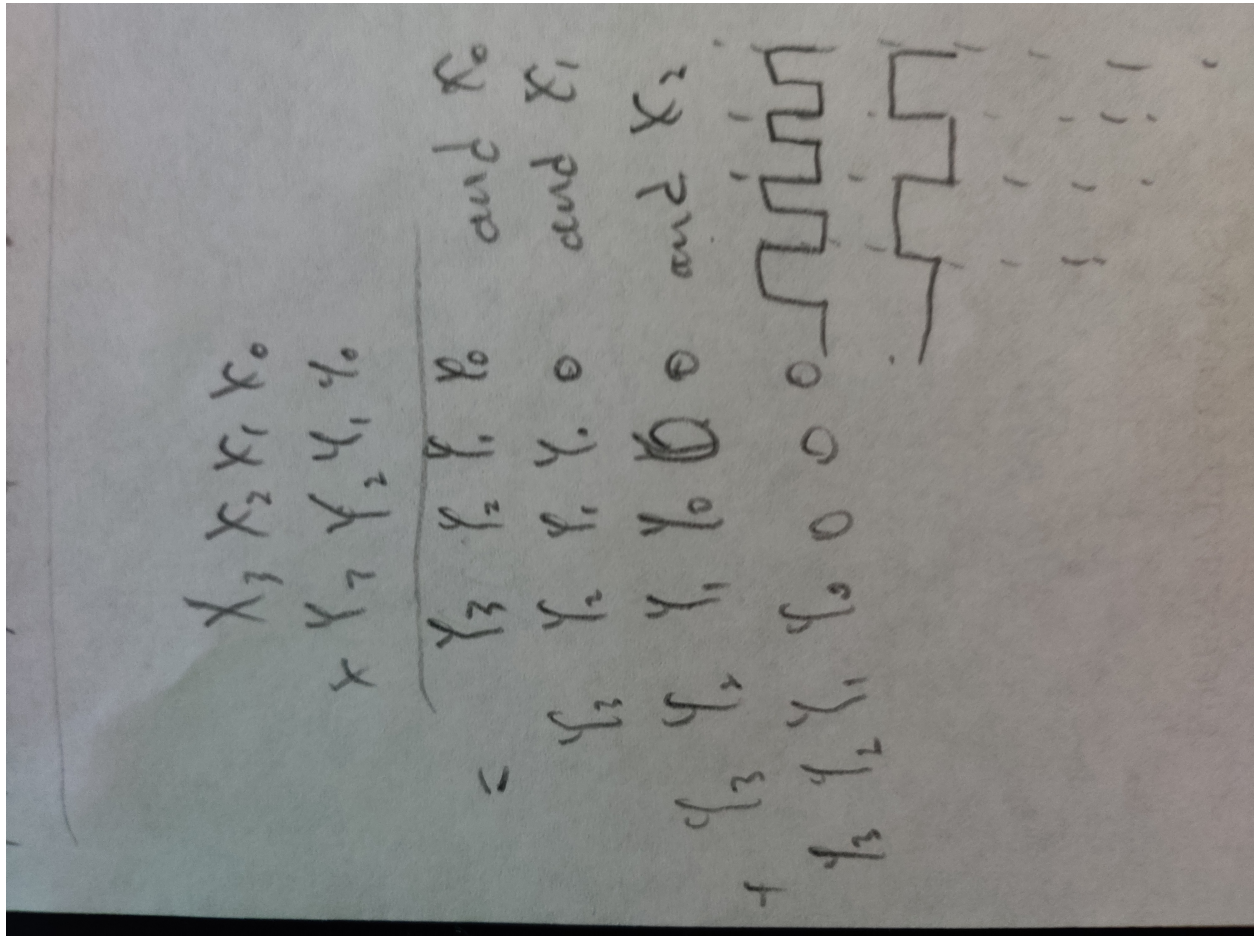 X3 X2 X1 X0
x Y3 Y2 Y1 Y0
= Y3 Y2 Y1 Y0 and X0
Y3 Y2 Y1 Y0 0 and X1
Y3 Y2 Y1 Y0 0 0 and X2
+ Y3 Y2 Y1 Y0 0 0 0